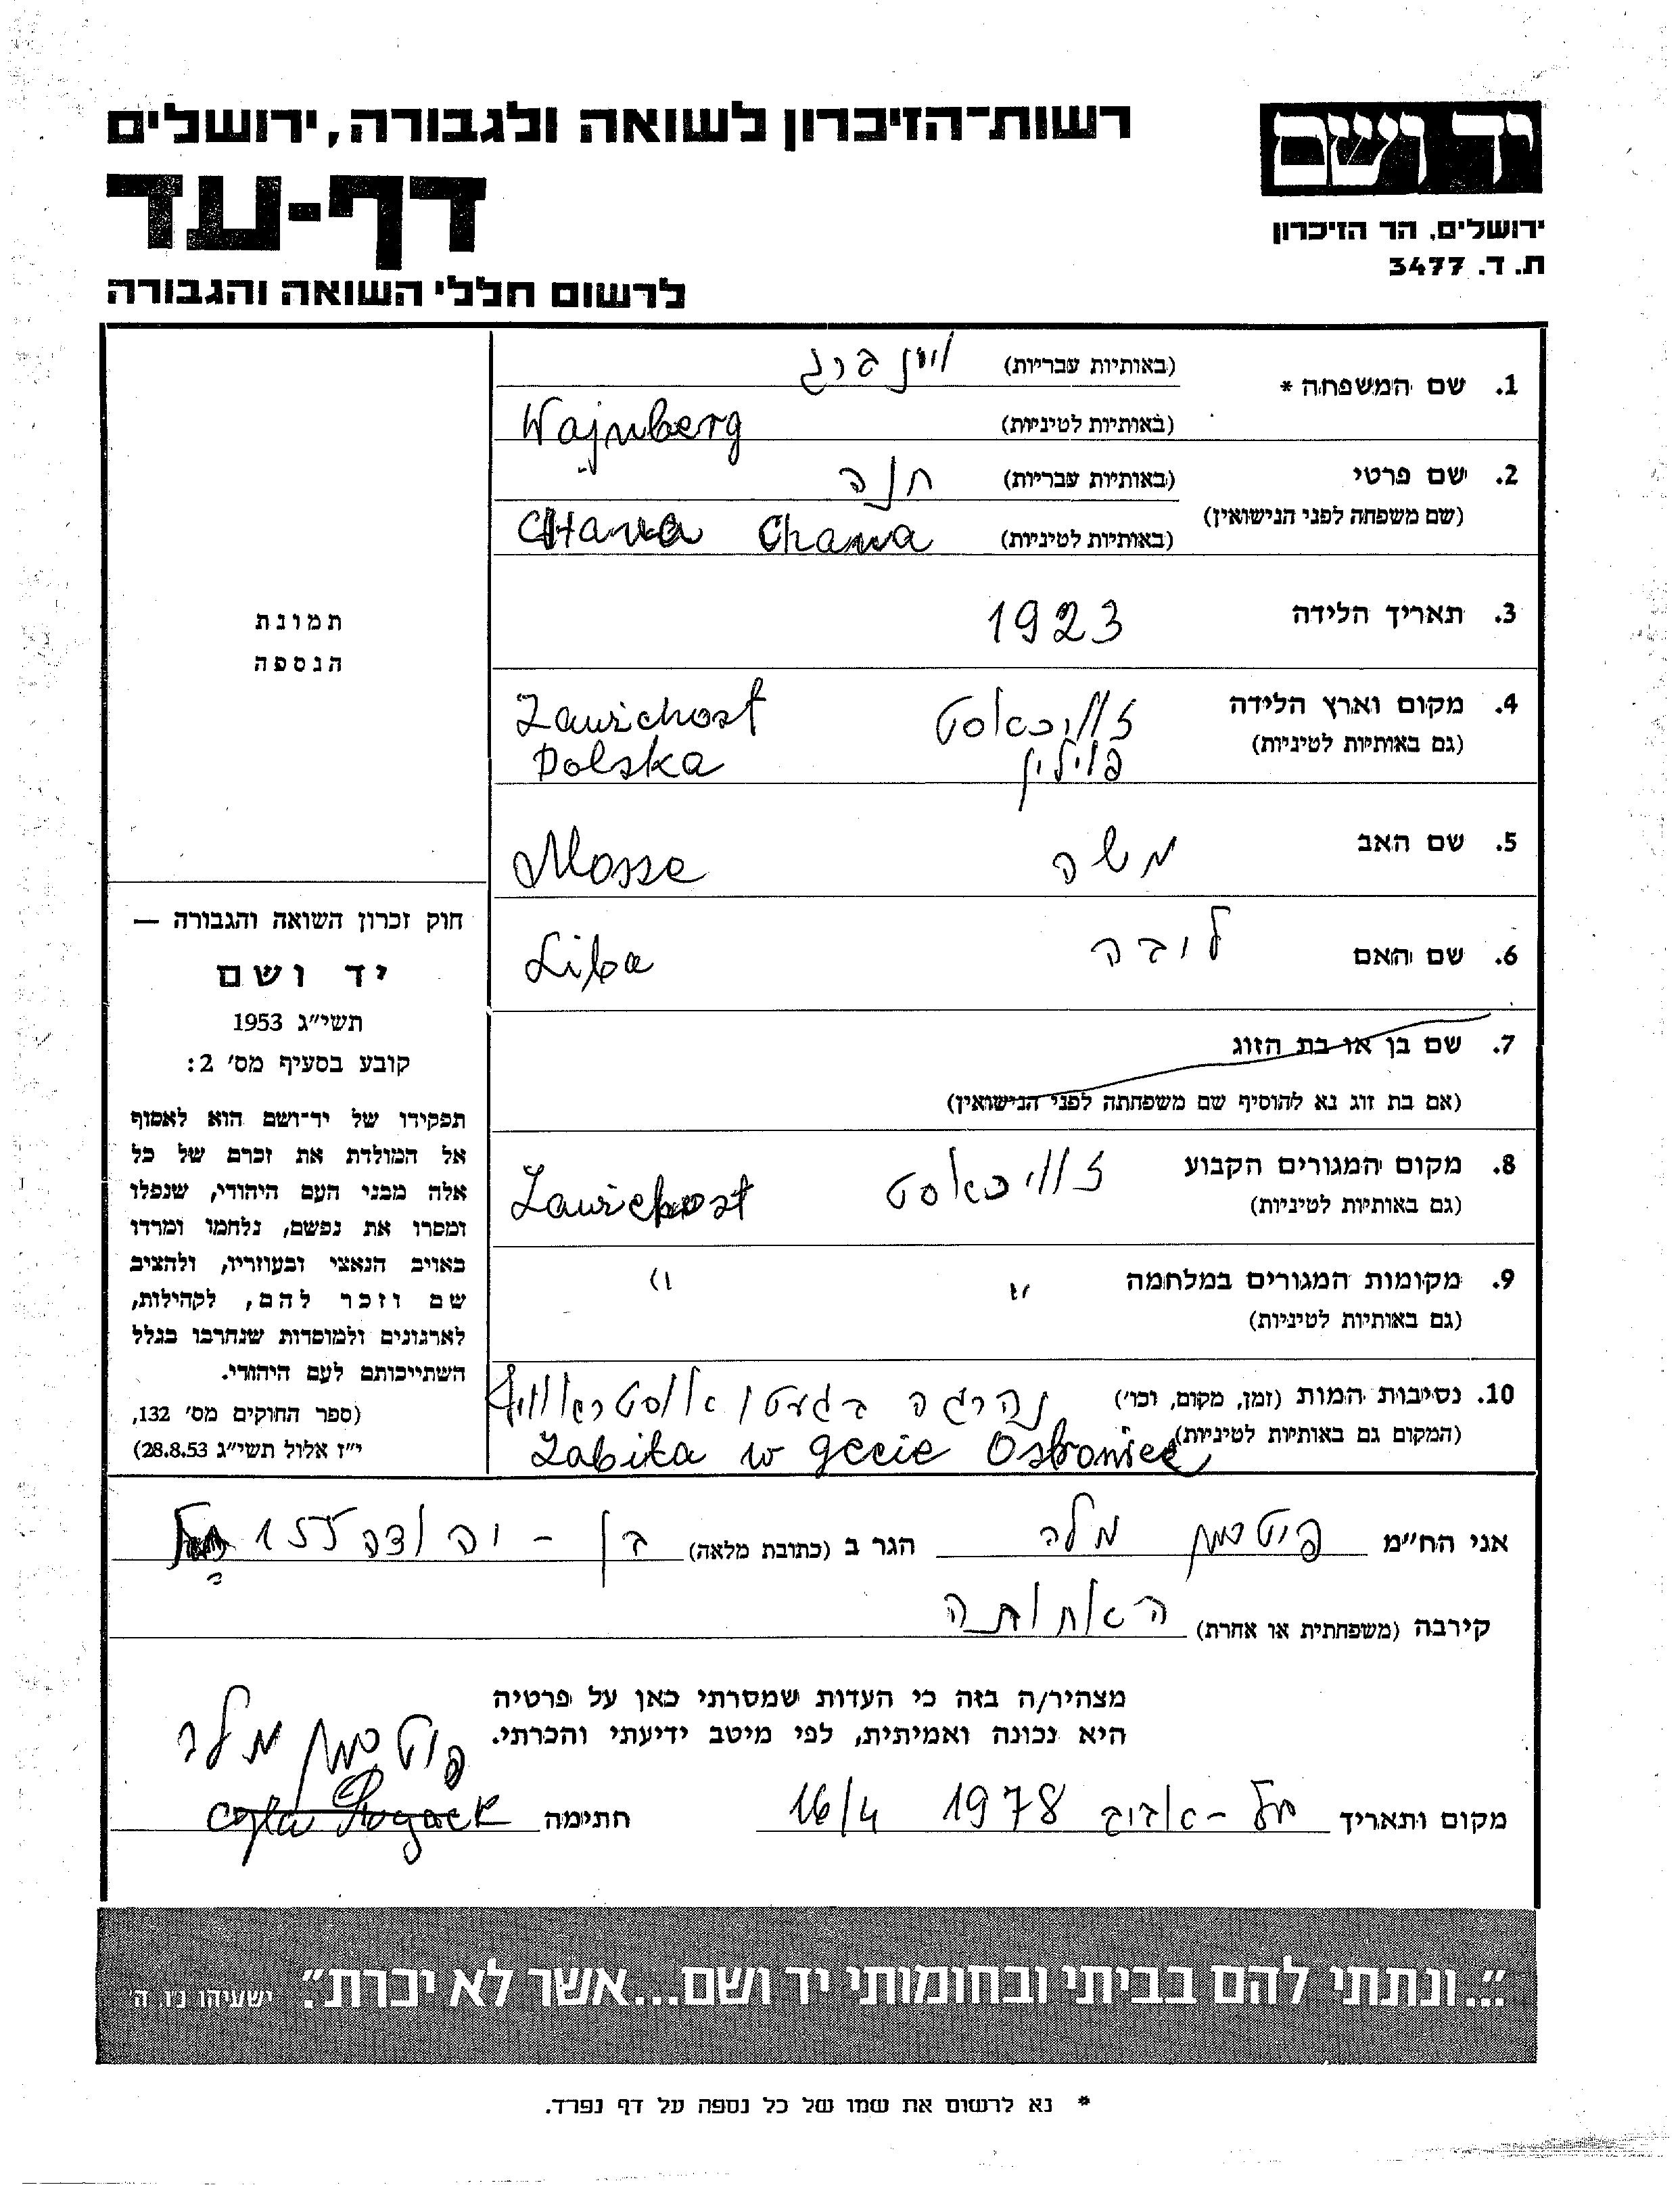 רשות־הזיכרון לשואה ולגבורה, ירושלים
יד ושם
דף-עד
ירושלים, הר הזיכרון
ת. ד. 3477
לרשום חללי השואה והגבורה
1. שם המשפחה * (באותיות עבריות) ויינברג
(באותיות לטיניות) Wajnberg
2. שם פרטי (באותיות עבריות) חנה
(שם משפחה לפני הנישואין) (באותיות לטיניות) Chana
3. תאריך הלידה 1923
4. מקום וארץ הלידה זוויכאוסט Zawichost
(גם באותיות לטיניות) פוילין Polska
5. שם האב משה Mosze
6. שם האם ליבה Liba
7. שם בן או בת הזוג
(אם בת זוג נא להוסיף שם משפחתה לפני הנישואין)
8. מקום המגורים הקבוע זוויכאוסט Zawichost
(גם באותיות לטיניות)
9. מקומות המגורים במלחמה " "
(גם באותיות לטיניות)
10. נסיבות המות (זמן, מקום, וכו') נהרגה בגעטו
(המקום גם באותיות לטיניות) Zabita w gecie Ostrowiec
תמונת
הנספה
חוק זכרון השואה והגבורה —
יד ושם
תשי״ג 1953
קובע בסעיף מס׳ 2:
תפקידו של יד־ושם הוא לאסוף
אל המולדת את זכרם של כל
אלה מבני העם היהודי, שנפלו
ומסרו את נפשם, נלחמו ומרדו
באויב הנאצי ובעוזריו, ולהציב
שם וזכר להם, לקהילות,
לארגונים ולמוסדות שנחרבו בגלל
השתייכותם לעם היהודי.
(ספר החוקים מס׳ 132,
י״ז אלול תשי״ג 28.8.53)
אני הח״מ פוטרמן מלכה הגר ב (כתובת מלאה) בן - יהודה 155
קירבה (משפחתית או אחרת) האחותה
מצהיר/ה בזה כי העדות שמסרתי כאן על פרטיה
היא נכונה ואמיתית, לפי מיטב ידיעתי והכרתי.
מקום ותאריך תל-אביב 1978 16/4 חתימה
"...ונתתי להם בביתי ובחומותי יד ושם...אשר לא יכרת". ישעיהו נ״ו, ה׳
* נא לרשום את שמו של כל נספה על דף נפרד.